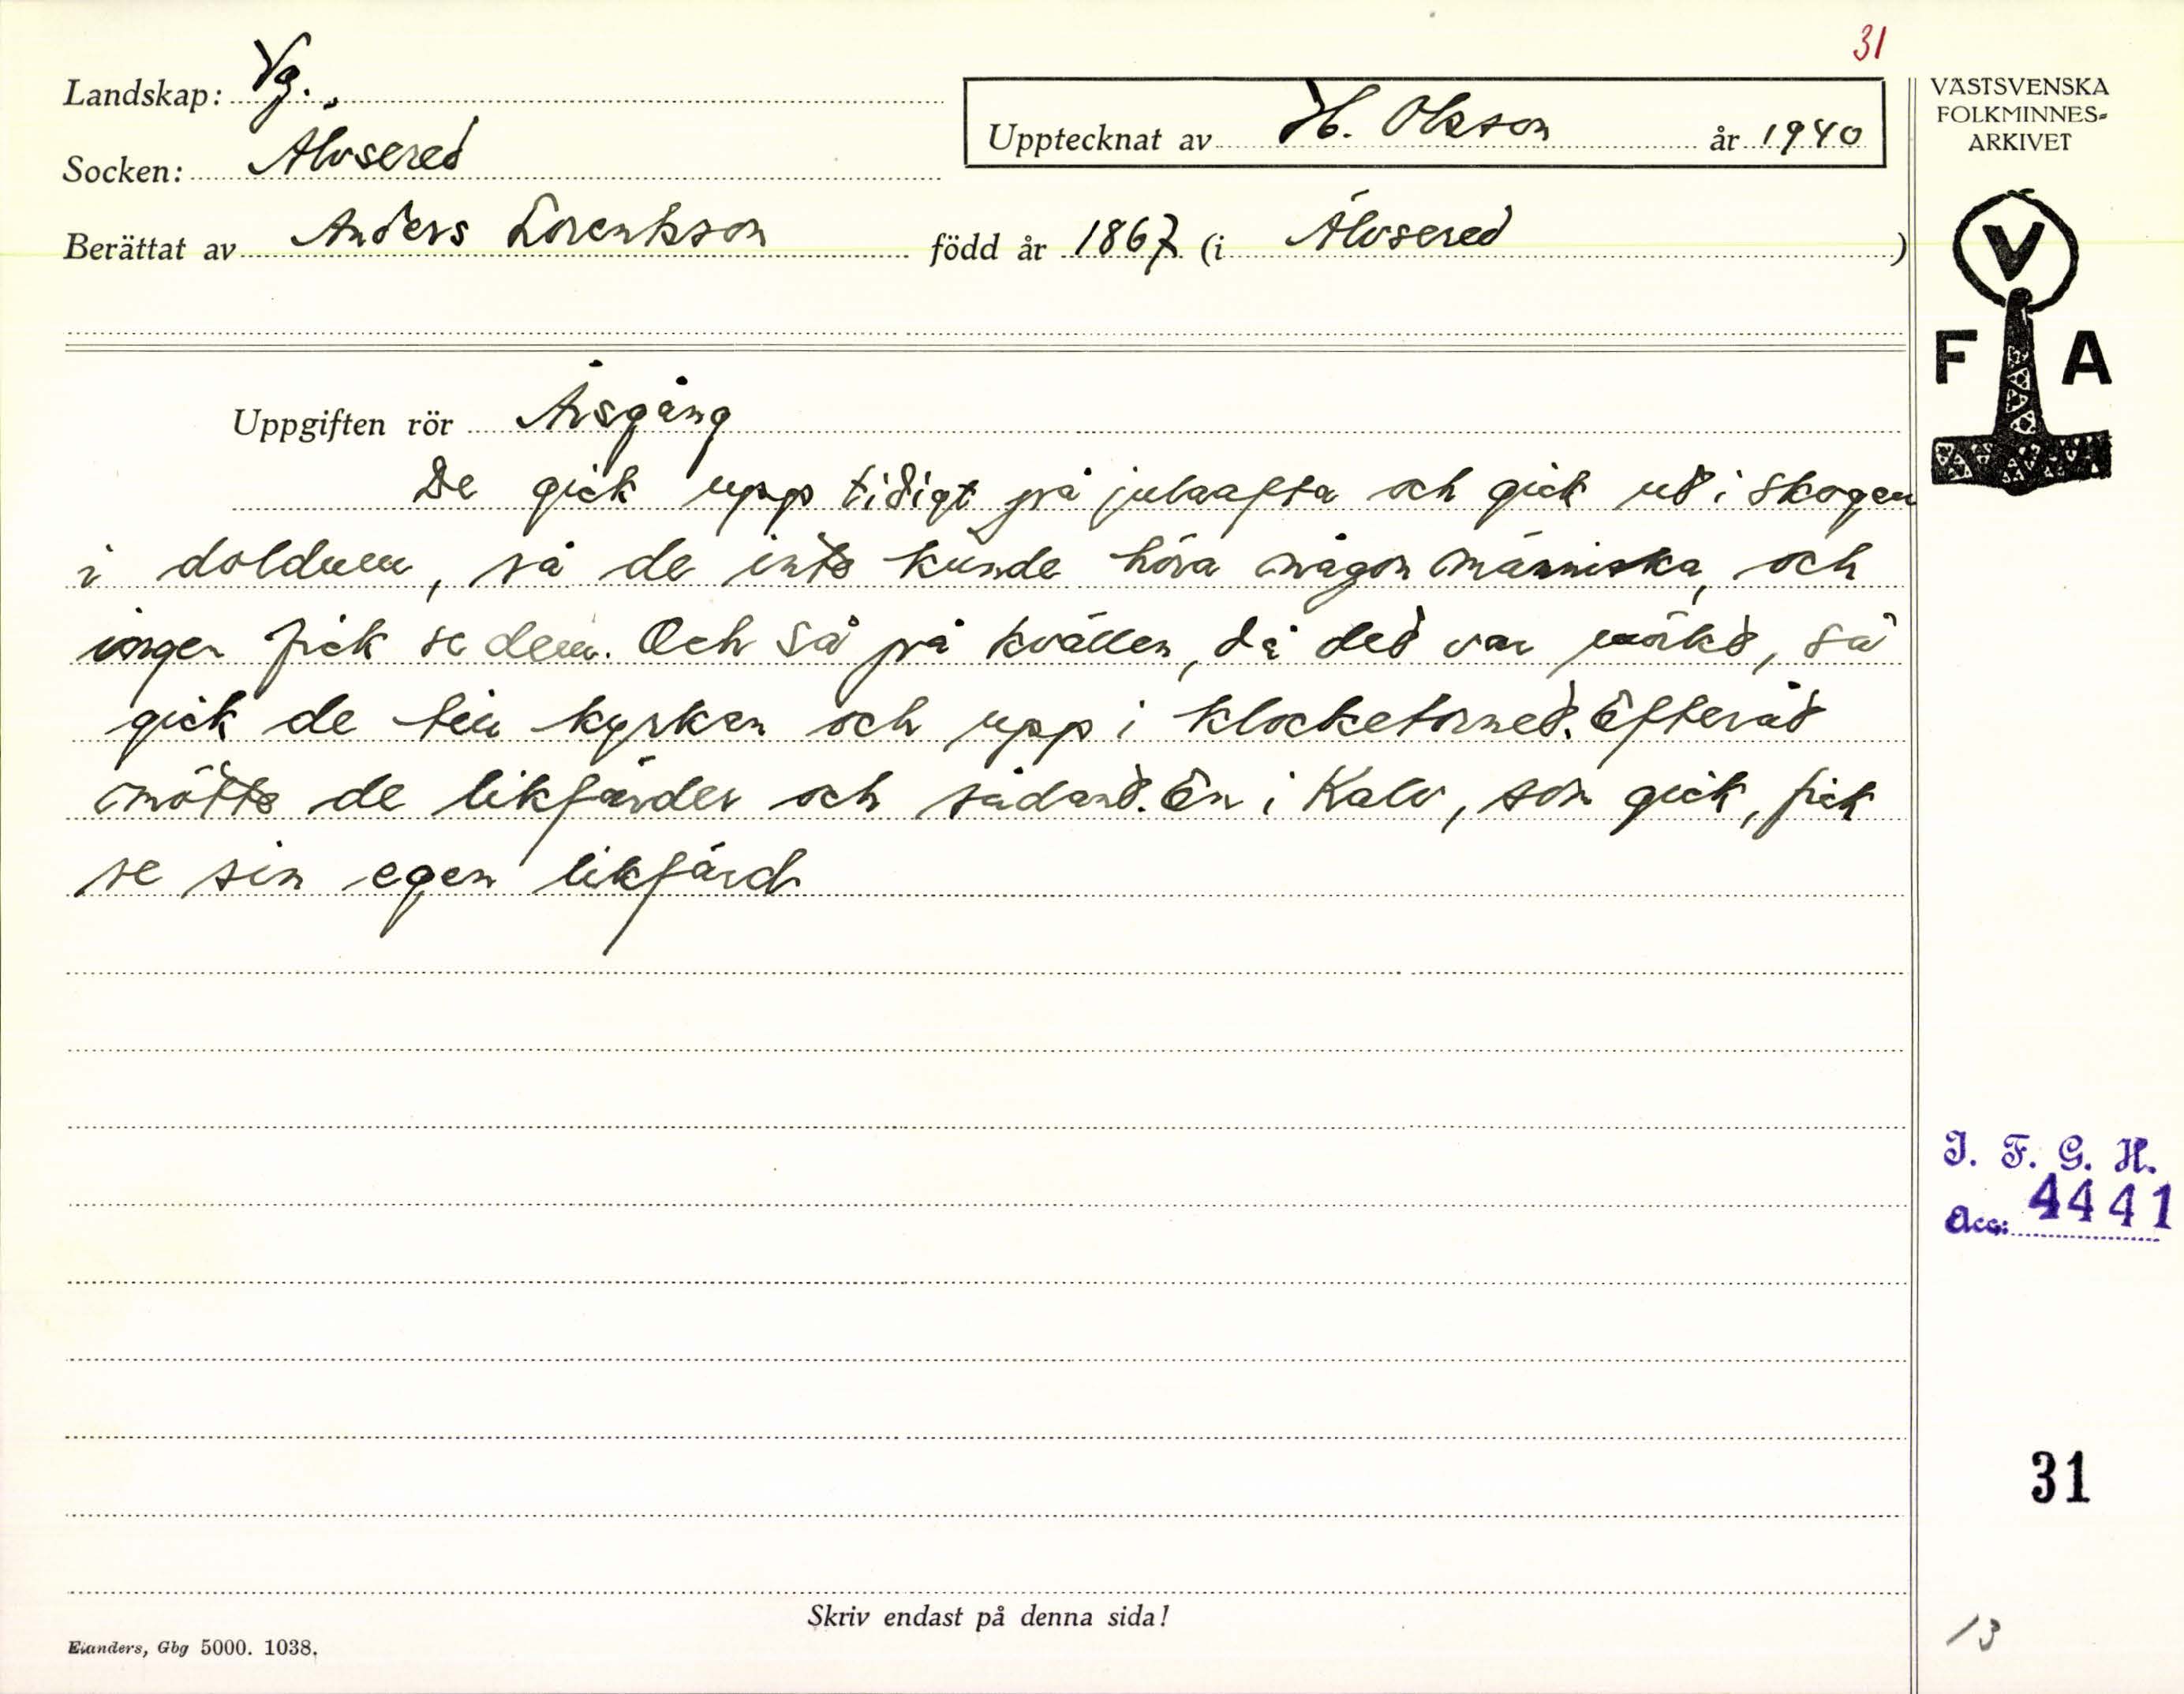 31
Landskap: Vg.
Upptecknat av H. Olsson år 1940
Socken: Älvsered
Berättat av Anders Lorentsson född år 1867 (i Älvsered)
VÄSTSVENSKA
FOLKMINNES-
ARKIVET
V
F A
Uppgiften rör Årsgång
De gick upp tidigt på julaafta och gick ut i skogen
i doldum, så de inte kunde höra någon människa, och
ingen fick se dem. Och så på kvällen, då det var mörkt, så
gick de till kyrkan och upp i klocketornet. Efteråt
mötte de likfärder och sådant. En i Kalv, som gick, fick
se sin egen likfärd
I. F. G. H.
Acc: 4441
31
Skriv endast på denna sida!
Elanders, Gbg 5000. 1038.
13